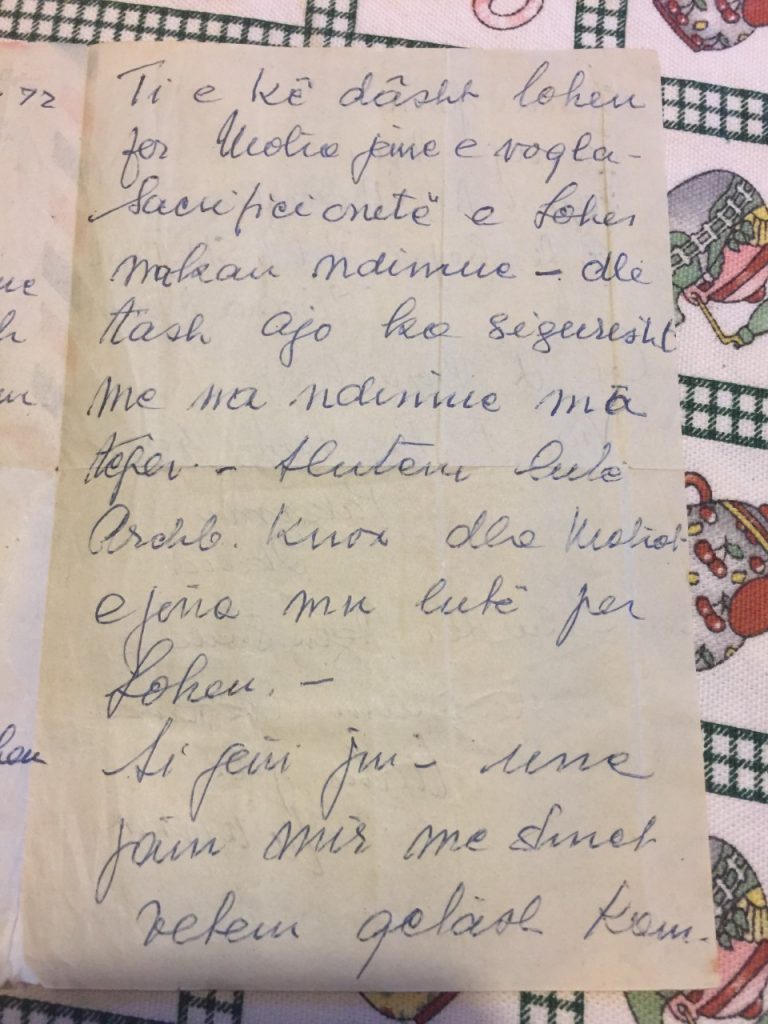 72
Ti e kê dâsht loken
for Motra jeme e vogla -
Sacrificionetë e Lokes
makan ndimue - dhe
tash ajo ka sigurisht
me na ndimue mâ
tëper. - tlutëm lutë
Archb. Knox dhe Motrat
e jona mu lutë per
Loken. -
Si jeni ju - une
jâm mir me shnet
vetem gelâsh kam.